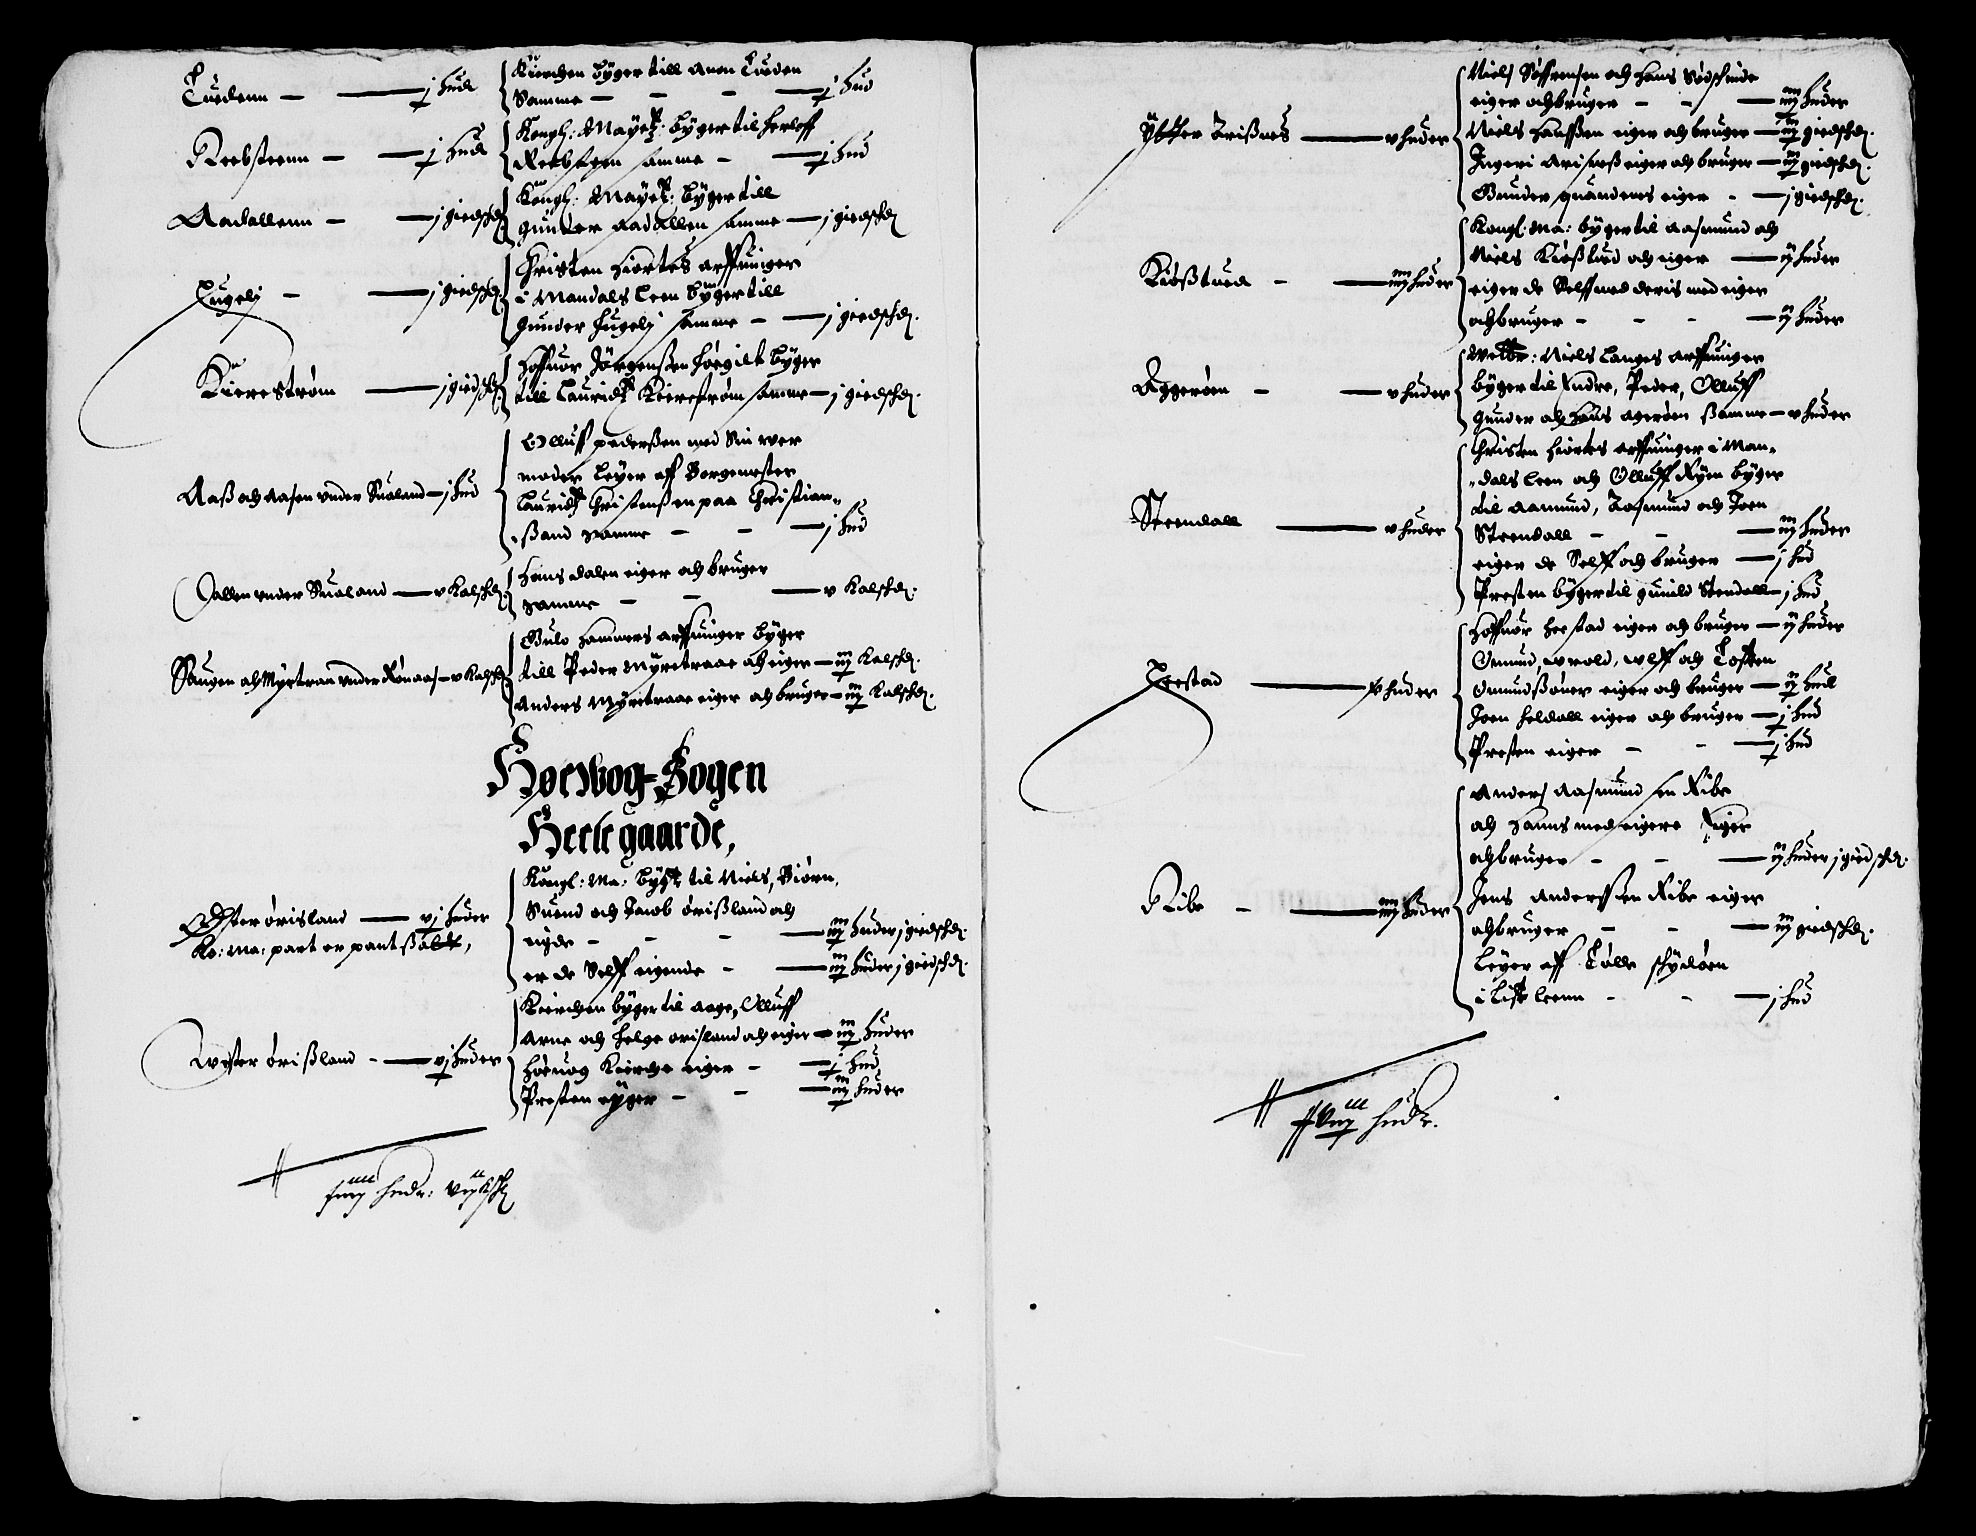 Tuedenn — j hud
Kierchen byger till Anon Tueden
Samme — j hud
Reebsteenn — j hud
Kongl: Mayet: byger til herloff
Reebsteen samme — j hud
Aadallenn — j giedschd
Kongl: Mayet: byger till
Gunder Aadallen samme — j giedschd
Fugely — j giedschd
Christen Hiortes arffuinger
i Mandals Leen byger till
Gunder Fugely samme — j giedschd.
Kierestrøm — j giedschd
Hoffuor Jörgenssen byger
till Lauridtz Kierestrøm samme — j giedschd.
Aass och Aasen vnder Sualand — j hud
Olluff pederssen med Sin wer
moder Leyer aff Borgemester
Lauridtz Christenssen paa Christian-
ssand samme — j hud
Dallen vnder Sualand — v Kalschd.
Hans Dalen eiger och bruger
samme — v Kalschd.
Saugen och Myrtraa vnder Rönaas — v Kalschd
Gulo Hammers arffuinger byger
till Peder Myretraae och eiger — iij Kalschd.
Anders Myretraae eiger och bruger — iij Kalschd.
Hørwog-Sogen
Heele gaarde,
Øster ørisland — vj huder
Ko: Ma: part er pantssoldt,
Kongl: Ma: bygt til Niels, Biörn,
Suend och Jacob örissland och
eigde — iij huder j giedschd.
er de Selff eigende — iij huder j giedschd.
Wester örissland — vj huder
Kierchen byger til Aage, Olluff
Arne och helge orisland och eiger — iij huder
Höeuog Kierche eiger — j hud
Presten eyger — iij huder
huder: Kschd
Ytther Trissnes — v huder
Niels Söffrensen och Hans
eiger och bruger — iiij huder
Niels Hanssen eiger och bruger — iij giedschd.
Ingeri eiger och bruger — iij giedschd.
Gunder quindens eiger — j giedschd.
Kiösstued — iiij huder
Kongl: Ma: byger til Aasmund och
Niels Kiösstued och eiger — ij huder
eiger de Selff med deris med eiger
och bruger — ij huder
Aggeröen — v huder
Welbr: Niels Langes arffuinger
byger til Andre, Peder, Olluff
Gunder och Hans Agerøen ssamme — v huder
Steendall — v huder
Christen Hiortes arffuinger i Man-
dals Leen och Olluff Ryen byger
til Aamund, Tasmund och Joen
Steendall — iij huder
eiger de Selff och bruger — j hud
Presten byger til gunild Stendall — j hud
Heestad — v huder
Hoffuor heestad eiger och bruger — ij huder
Omund, Wrold, Wlff och Tosten
Omundssöner eiger och bruger — ij hud
Joen heldall eiger och bruger — j hud
Presten eiger — j hud
Ribe — iiij huder
Anders Aasmundsen Ribe
och Hanns medeigere Eiger
och bruger — ij huder j giedschd.
Jens Anderssen Ribe eiger
och bruger — iij giedschd.
Leyer aff Tolle
i Liste Leenn — j hud
huder.